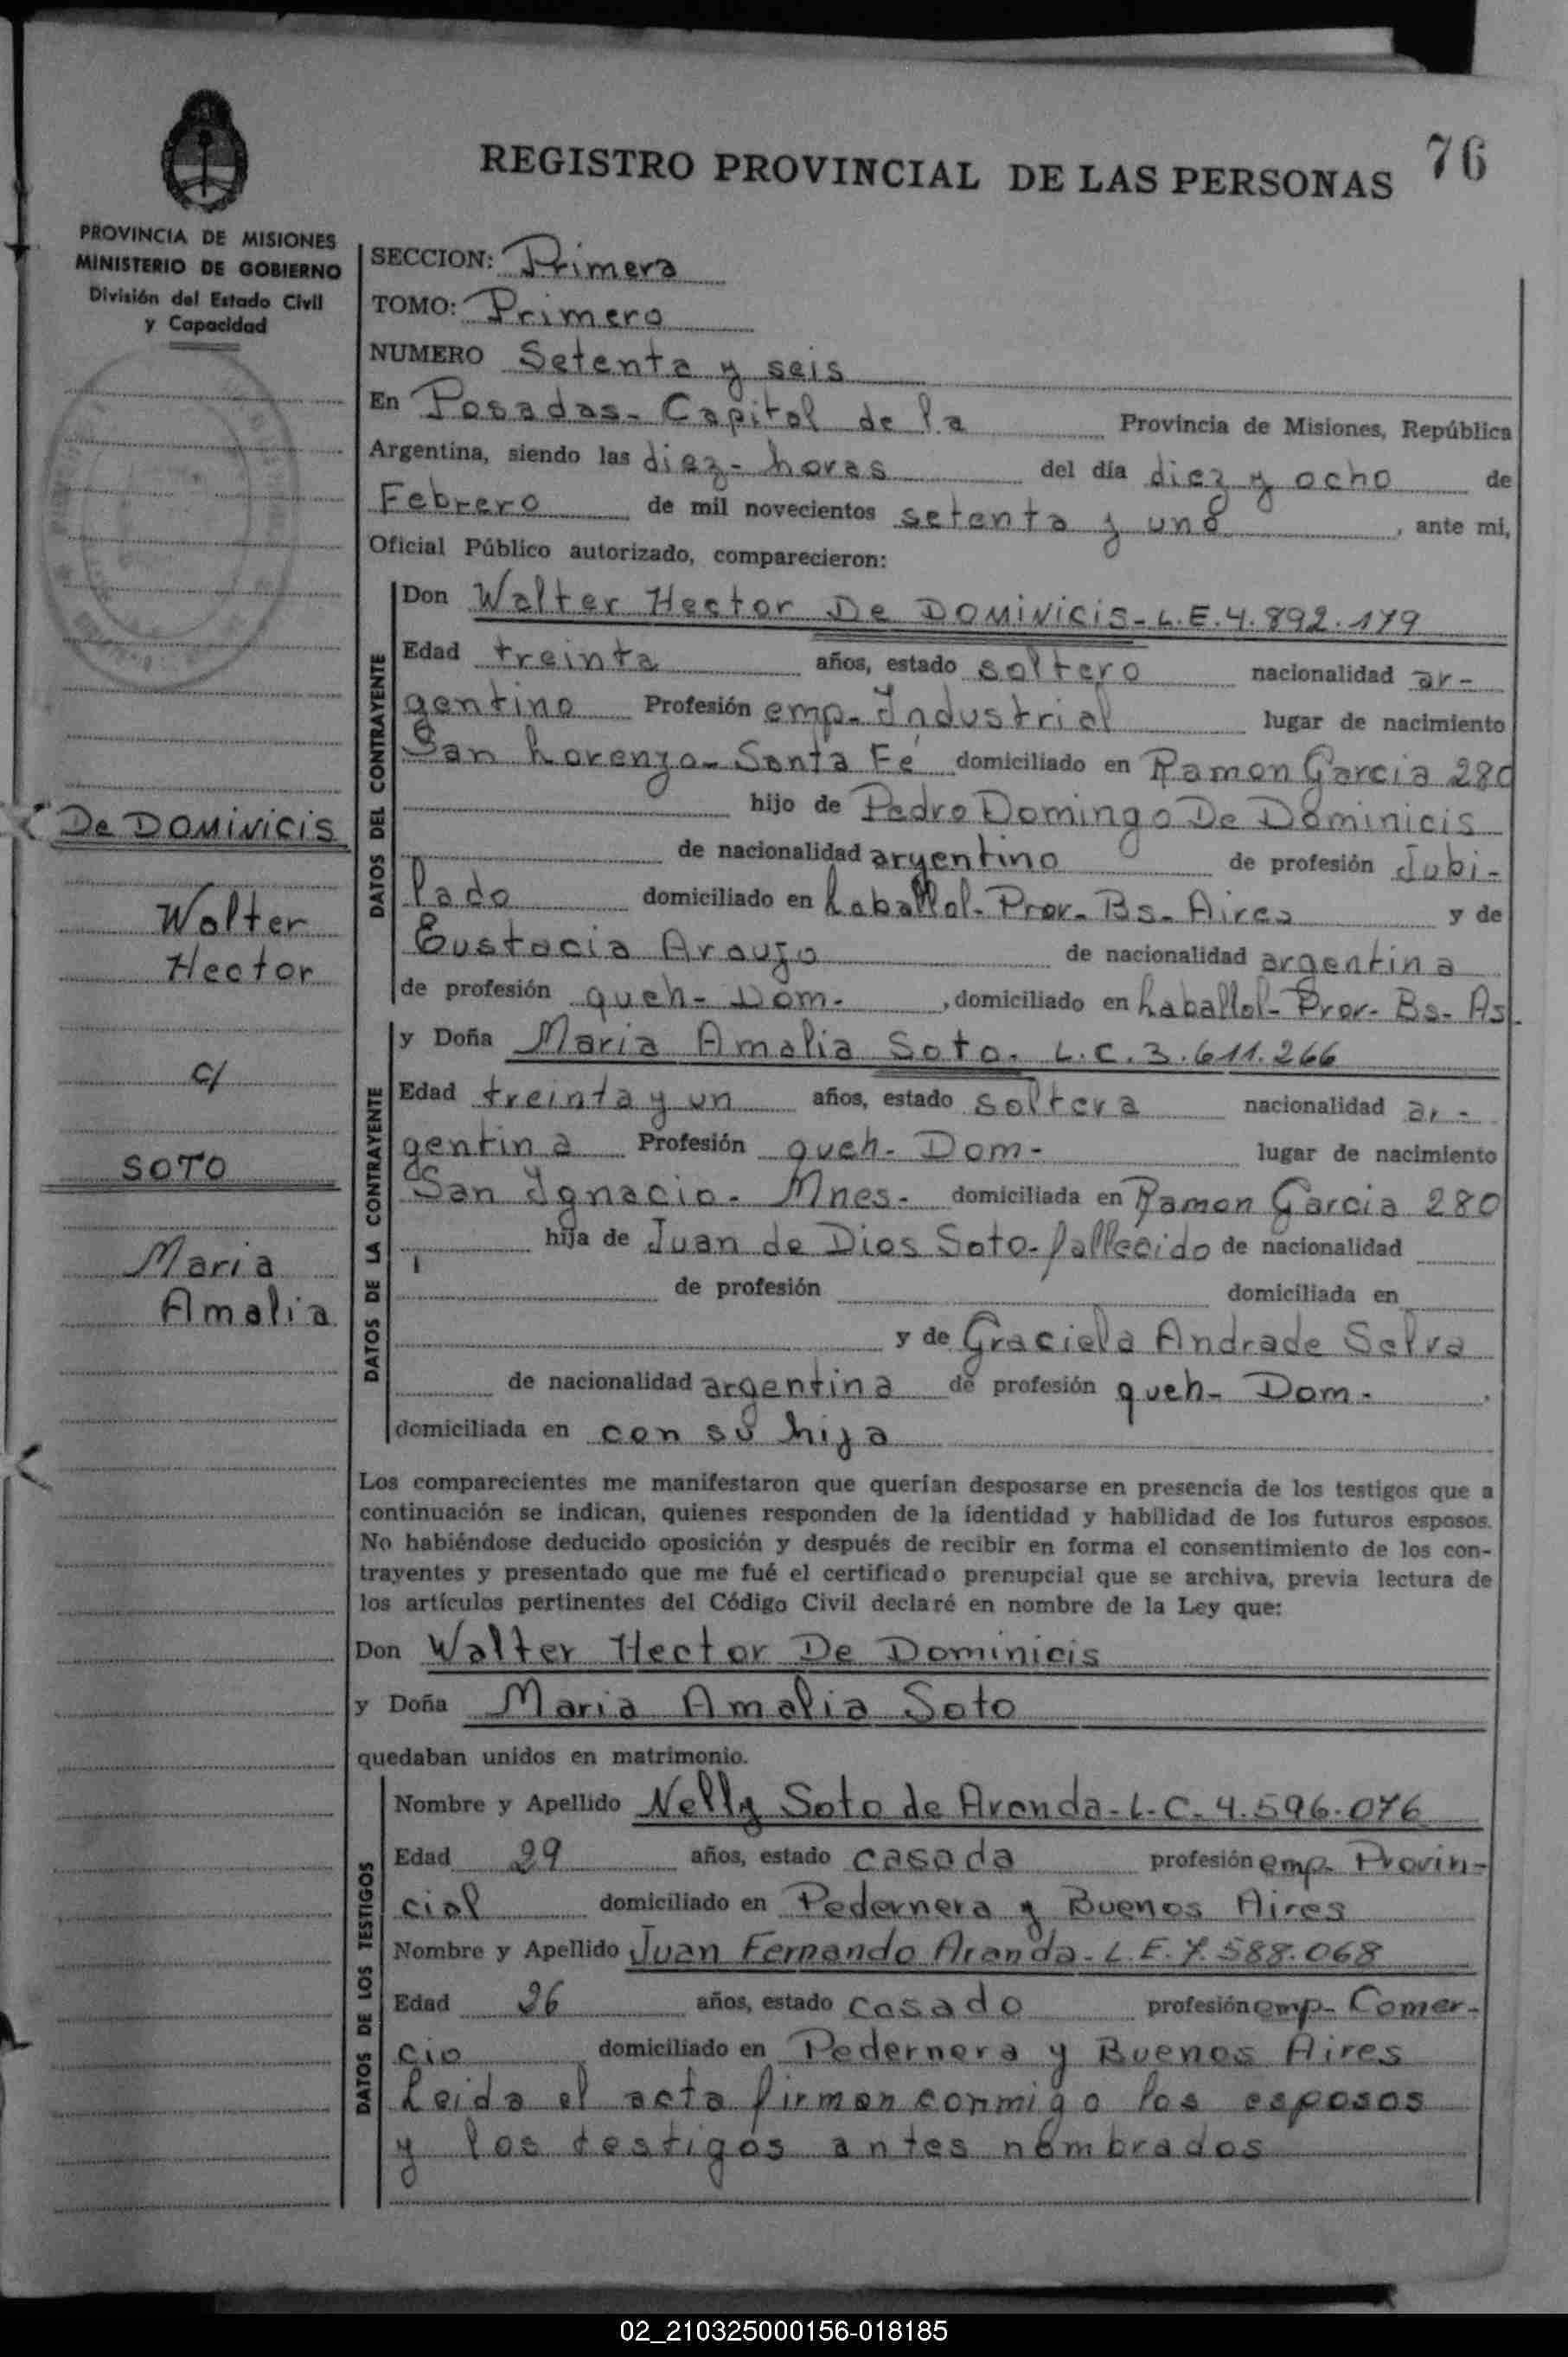 REGISTRO PROVINCIAL DE LAS PERSONAS 76
PROVINCIA DE MISIONES
MINISTERIO DE GOBIERNO
División del Estado Civil
y Capacidad
De DOMINICIS
Walter
Hector
c/
SOTO
Maria
Amalia
SECCION: Primera
TOMO: Primero
NUMERO Setenta y seis
En Posadas - Capital de la Provincia de Misiones, República
Argentina, siendo las diez - horas del día diez y ocho de
Febrero de mil novecientos setenta y uno, ante mi,
Oficial Público autorizado, comparecieron:
DATOS DEL CONTRAYENTE
Don Walter Hector De DOMINICIS - L.E. 4.892.179
Edad treinta años, estado soltero nacionalidad ar-
gentino Profesión emp. Industrial lugar de nacimiento
San Lorenzo - Santa Fé domiciliado en Ramon Garcia 280
hijo de Pedro Domingo De Dominicis
de nacionalidad argentino de profesión Jubi-
lado domiciliado en Laballol - Prov. Bs. Aires y de
Eustacia Araujo de nacionalidad argentina
de profesión queh - Dom - , domiciliado en Laballol - Prov - Bs - As.
DATOS DE LA CONTRAYENTE
y Doña Maria Amalia Soto - L.C. 3.611.266
Edad treinta y un años, estado soltera nacionalidad ar -
gentina Profesión queh - Dom - lugar de nacimiento
San Ignacio - Mnes - domiciliada en Ramon Garcia 280
hija de Juan de Dios Soto - fallecido de nacionalidad
de profesión domiciliada en
y de Graciela Andrade Selva
de nacionalidad argentina de profesión queh - Dom -
domiciliada en con su hija
Los comparecientes me manifestaron que querían desposarse en presencia de los testigos que a
continuación se indican, quienes responden de la identidad y habilidad de los futuros esposos.
No habiéndose deducido oposición y después de recibir en forma el consentimiento de los con-
trayentes y presentado que me fué el certificado prenupcial que se archiva, previa lectura de
los artículos pertinentes del Código Civil declaré en nombre de la Ley que:
Don Walter Hector De Dominicis
y Doña Maria Amalia Soto
quedaban unidos en matrimonio.
DATOS DE LOS TESTIGOS
Nombre y Apellido Nelly Soto de Aranda - L.C. 4.596.076
Edad 29 años, estado casada profesión emp. Provin-
cial domiciliado en Pedernera y Buenos Aires
Nombre y Apellido Juan Fernando Aranda - L.E. 7.588.068
Edad 26 años, estado casado profesión emp - Comer-
cio domiciliado en Pedernera y Buenos Aires
Leida el acta firman conmigo los esposos
y los testigos antes nombrados
02_210325000156-018185